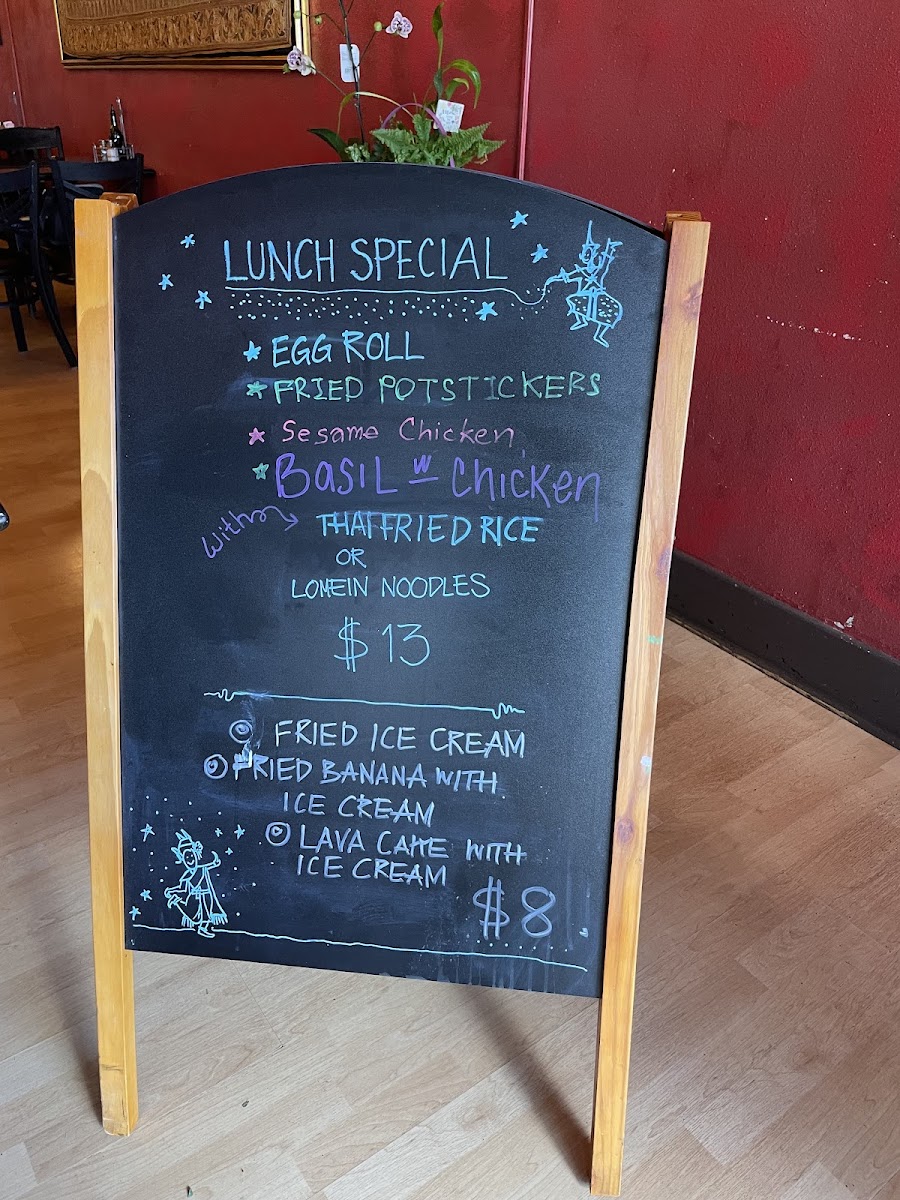 LUNCH SPECIAL
EGG ROLL
FRIED POTSTICKERS
Sesame Chicken
BASIL w Chicken
with THAI FRIED RICE
OR
LOMEIN NOODLES
$13
FRIED ICE CREAM
FRIED BANANA WITH
ICE CREAM
LAVA CAKE WITH
ICE CREAM
$8